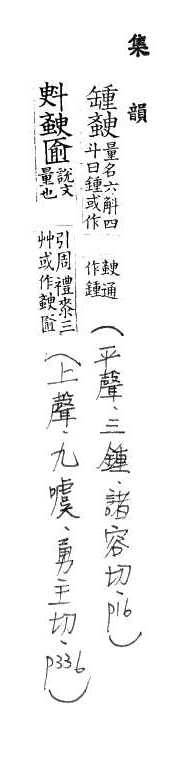 集韻
量名六斛四
斗曰鍾或作
通
作鍾
(平聲.三鍾.諸容切.p16)
斞 匬
說文
量也
引周禮桼三
斞或作 匬
(上聲.九噳.勇主切.p336)